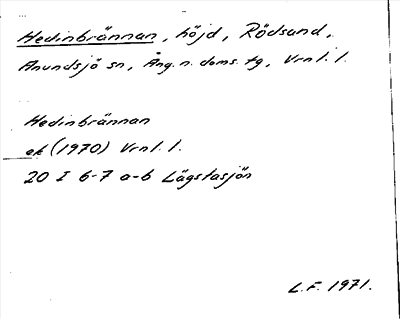 Hedinbrännan, höjd, Rödsund,
Anundsjö sn, Ång. n. doms. tg, Vrnl. l.
Hedinbrännan
ek (1970) Vrnl. l.
20 I 6-7 a-b Lägstasjön
L.F. 1971.